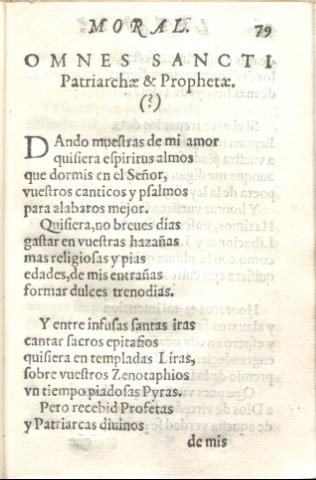 MORAL. 79
OMNES SANCTI
Patriarchæ & Prophetæ.
(?)
DAndo muestras de mi amor
quisiera espiritus almos
que dormis en el Señor,
vuestros canticos y psalmos
para alabaros mejor.
Quisiera, no breues dias
gastar en vuestras hazañas
mas religiosas y pias
edades, de mis entrañas
formar dulces trenodias.
Y entre infusas santas iras
cantar sacros epitafios
quisiera en templadas Liras,
sobre vuestros Zenotaphios
vn tiempo piadosas Pyras.
Pero recebid Profetas
y Patriarcas diuinos
de mis